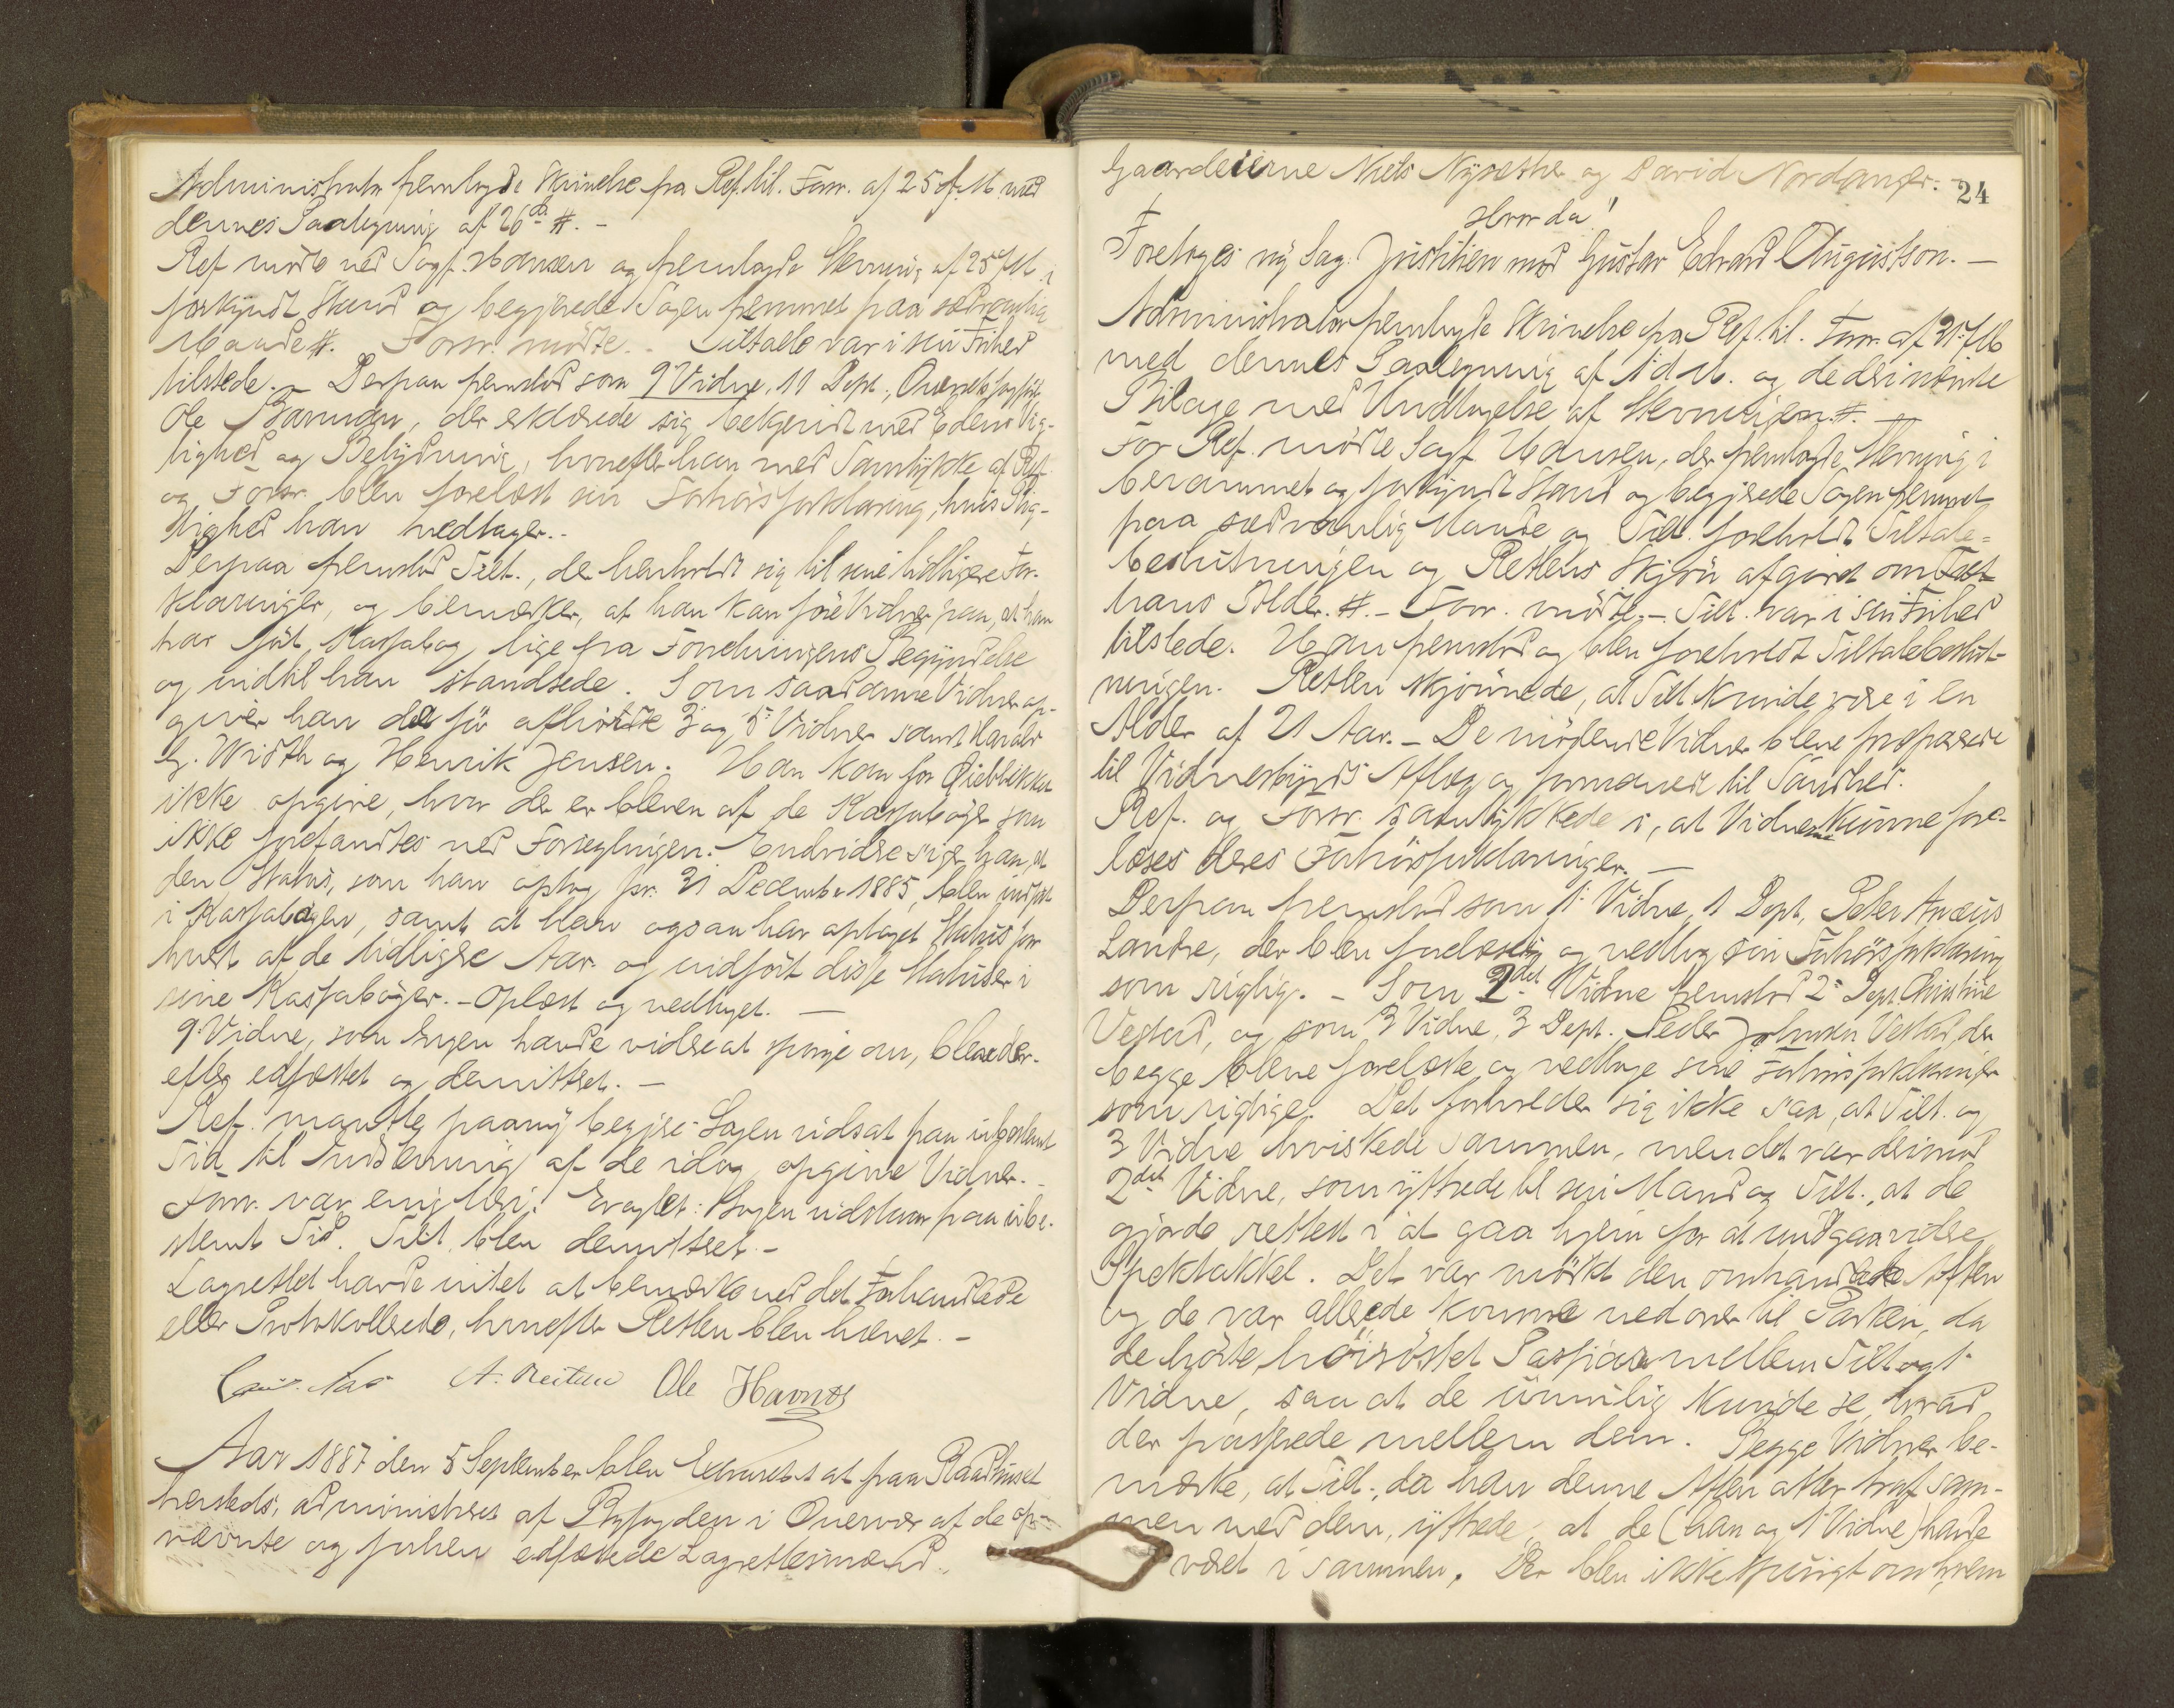 Administrator fremlagde Skrivelse fra Ref. til Forsv. af 25 f. M. med
dennes Paategning af 26 ds #. -
Ref mødte ved Sagf. Hansen og fremlagde Stevning af 25 f M. i
forkyndt Stand og begjærede Sagen fremmet paa sædvanlig
Maade #. Forsv. mødte. - Tiltalte var i sin Frihed
tilstede. - Derpaa fremstod som 9 Vidne, 11 Dept.,
Ole, der erklærede sig bekjendt med Edens Vig-
tighed og Betydning, hvorefter han med Samtykke af Ref.
og Forsv. blev forelæst sin Forhørsforklaring, hvis Rig-
tighed han vedtager. -
Derpaa fremstod Tilt., der henholdt sig til sine tidligere For-
klaringer, og bemærker, at han kan føre Vidner paa, at han
har ført Kassabog lige fra Forretningens Begyndelse
og indtil han standsede. Som saadanne Vidner op-
giver han de før afhørte 3 og 5 Vidner samt Harald
G. Width og Henrik Jensen. Han kan for Øieblikket
ikke opgive, hvor der er bleven af de Kassabøger som
ikke forefandtes ved Forseglingen. Endvidere siger han, at
den Status, som han optog pr. 31 December 1885, blev indført
i Kassabogen, samt at han ogsaa har optaget Status for
hvert af de tidligere Aar og indført disse Statuser i
sine Kassabøger. - Oplæst og vedtaget. -
9 Vidne, som Ingen havde videre at spørge om, blev der-
efter edfæstet og demitteret. -
Ref. maatte paany begjære Sagen udsat paa ubestemt
Tid til Indstevning af de idag opgivne Vidner. -
Forsv. var enig heri. Eragtet: Sagen udstaar paa ube-
stemt Tid. Tilt. blev demitteret. -
Lagrettet havde intet at bemærke ved det Forhandlede
eller Protokollerede, hvorefter Retten blev hævet. -
A. Reiten Ole Havnes
Aar 1887 den 5 September blev Extraret sat paa Raadhuset
hersteds, administreret af Byfogden i Overvær af de op-
nævnte og forhen edfæstede Lagrettesmænd
Gaardeierne Niels Nysether og David Nordanger. -
24
Hvorda!
Foretoges ny Sag: Justitien mod Gustav Edvard Augustson. -
Administrator fremlagde Skrivelse fra Ref. til Forsv. af 31 f M
med dennes Paategning af 1 d M. og de deri nævnte
Bilage med Undtagelse af Stevningen #. -
For Ref. mødte Sagf. Hansen, der fremlagde Stevning i
berammet og forkyndt Stand og begjærede Sagen fremmet
paa sædvanlig Maade og Tilt. foreholdt Tiltale-
beslutningen og Rettens Skjøn afgivet om
hans Alder. #. - Forsv. mødte. - Tilt. var i sin Frihed
tilstede. Han fremstod og blev foreholdt Tiltalebeslut-
ningen. Retten skjønnede, at Tilt kunde være i en
Alder af 21 Aar. - De mødende Vidner bleve præparerede
til Vidnesbyrds Aflæg og formanede til Sandhed.
Ref. og Forsv. samtykkede i, at Vidnerne kunne fore-
læses deres Forhørsforklaringer. -
Derpaa fremstod som 1 Vidne, 1 Dept, Peter Anæus
Landre, der blev forelæst og vedtog sin Forhørsforklaring
som rigtig. - Som 2det Vidne fremstod 2 Dept. Christine
Vestad, og som 3 Vidne, 3 Dept. Peder Johnsen Vestad, der
begge bleve forelæste og vedtoge sine Forhørsforklaringer
som rigtige. Det forholder sig ikke saa, at Tilt. og
3 Vidne hviskede sammen, men det var derimod
2det Vidne, som yttrede til sin Mand og Tilt., at de
gjorde rettest i at gaa hjem for at undgaa videre
Spektakkel. Det var mørkt den omhandlede Aften
og de var allerede komne ned over til Parken, da
de hørte høirøstet Passiar mellem Tilt og 1
Vidne, saa at de umulig kunde se, hvad
der passerede mellem dem. Begge Vidner be-
mærke, at Tilt., da han denne Aften atter traf sam-
men med dem, yttrede, at de (han og 1 Vidne) havde
været i sammen. Der blev ikke spurgt om hvem